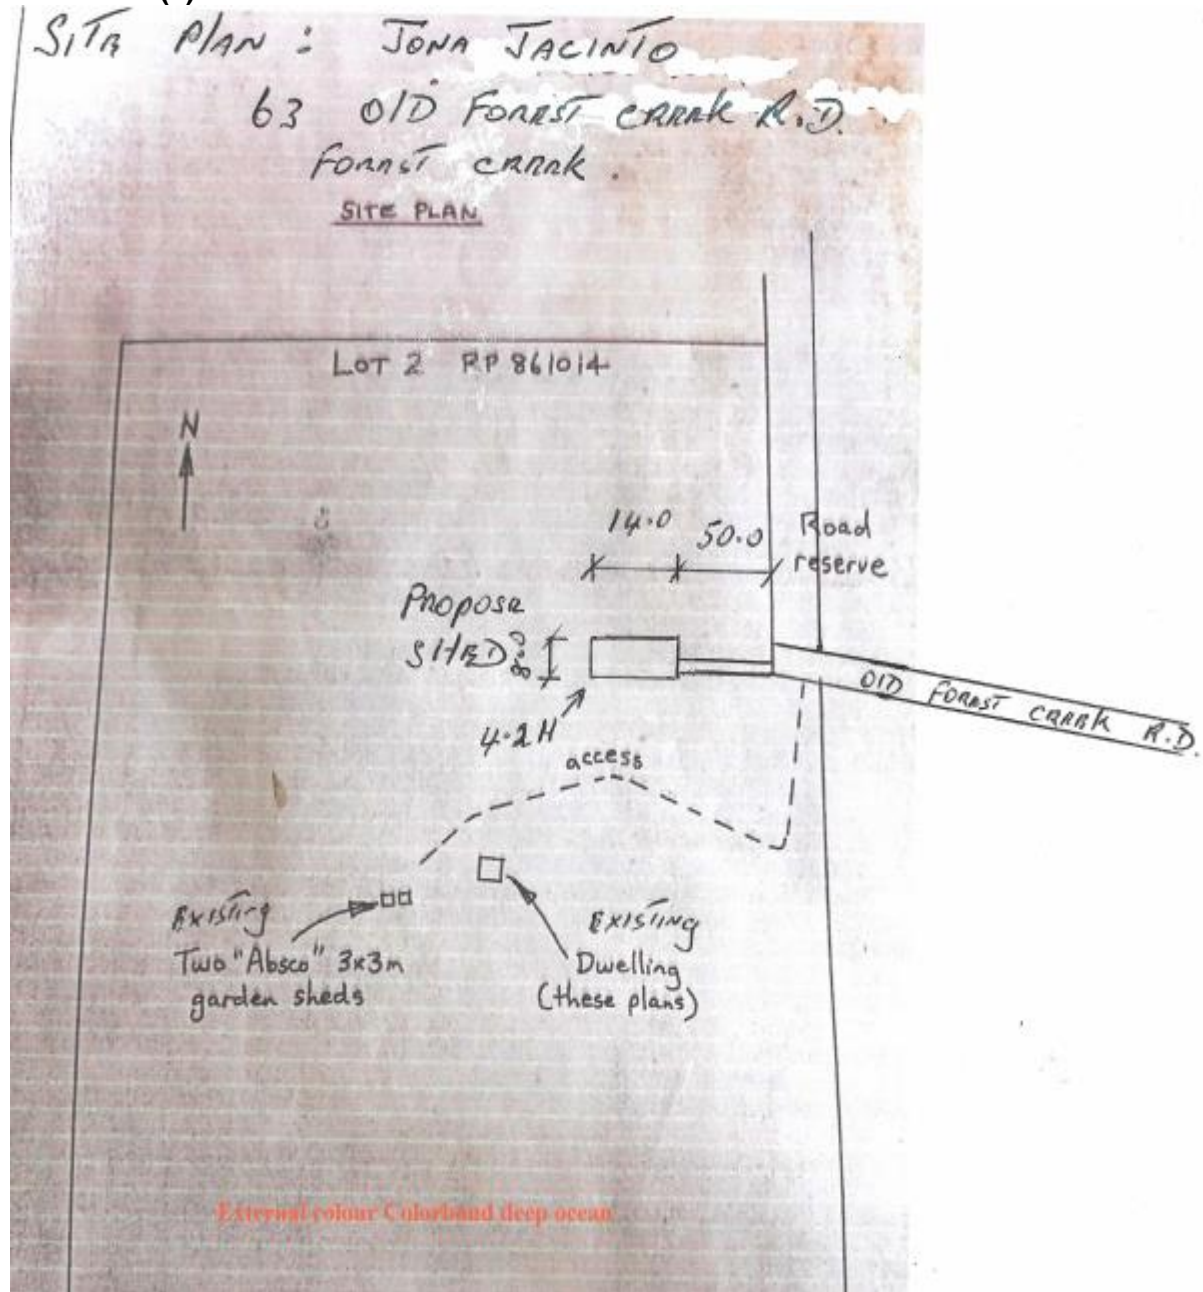 SITE PLAN : JONA JACINTO
63 OLD FOREST CREEK R.D.
FOREST CREEK .
SITE PLAN
LOT 2 RP 861014
N
14.0
50.0
Road
reserve
PROPOSE
SHED
8.0
4.2H
OLD FOREST CREEK R.D.
access
EXISTING
Two "Absco" 3x3m
garden sheds
EXISTING
Dwelling
(these plans)
External colour Colorbond deep ocean